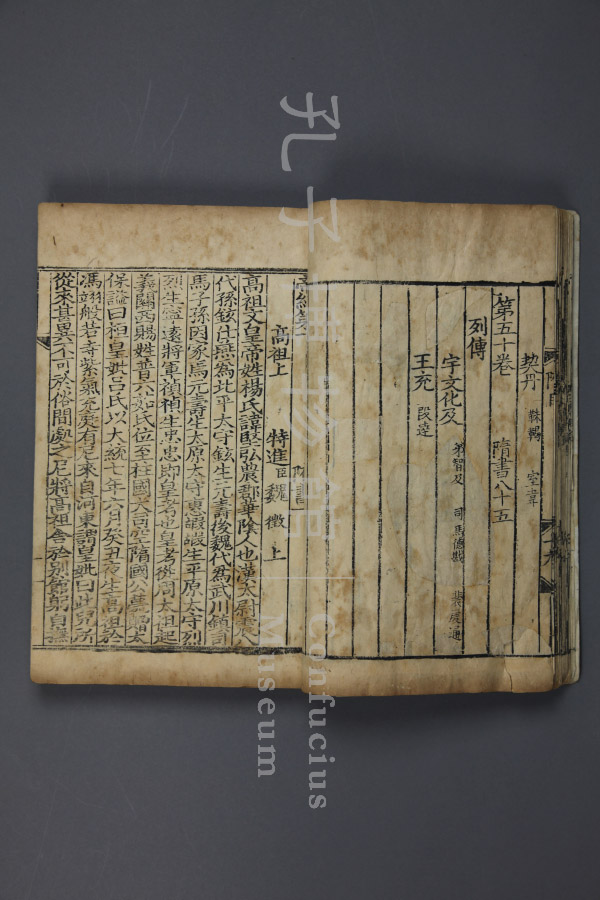 契丹 靺鞨 室韋
第五十卷 隋書八十五
列傳
宇文化及 弟智及 司馬德戡 裴虔通
王充 段達
高祖上 特進臣魏徵上
高祖文皇帝姓楊氏諱堅弘農郡華陰人也漢太尉震八
代孫鉉仕燕為北平太守鉉生元壽後魏代為武川鎮司
馬子孫因家焉元壽生太原太守惠嘏嘏生平原太守烈
烈生寧遠將軍禎禎生忠忠即皇考也皇考從周太祖起
義關西賜姓普六茹氏位至柱國大司空隋國公薨贈太
保諡曰桓皇妣呂氏以大統七年六月癸丑夜生高祖於
馮翊般若寺紫氣充庭有尼來自河東謂皇妣曰此兒所
從來甚異不可於俗間處之尼將高祖舍於別館躬自撫
孔子博物館
Confucius
Museum